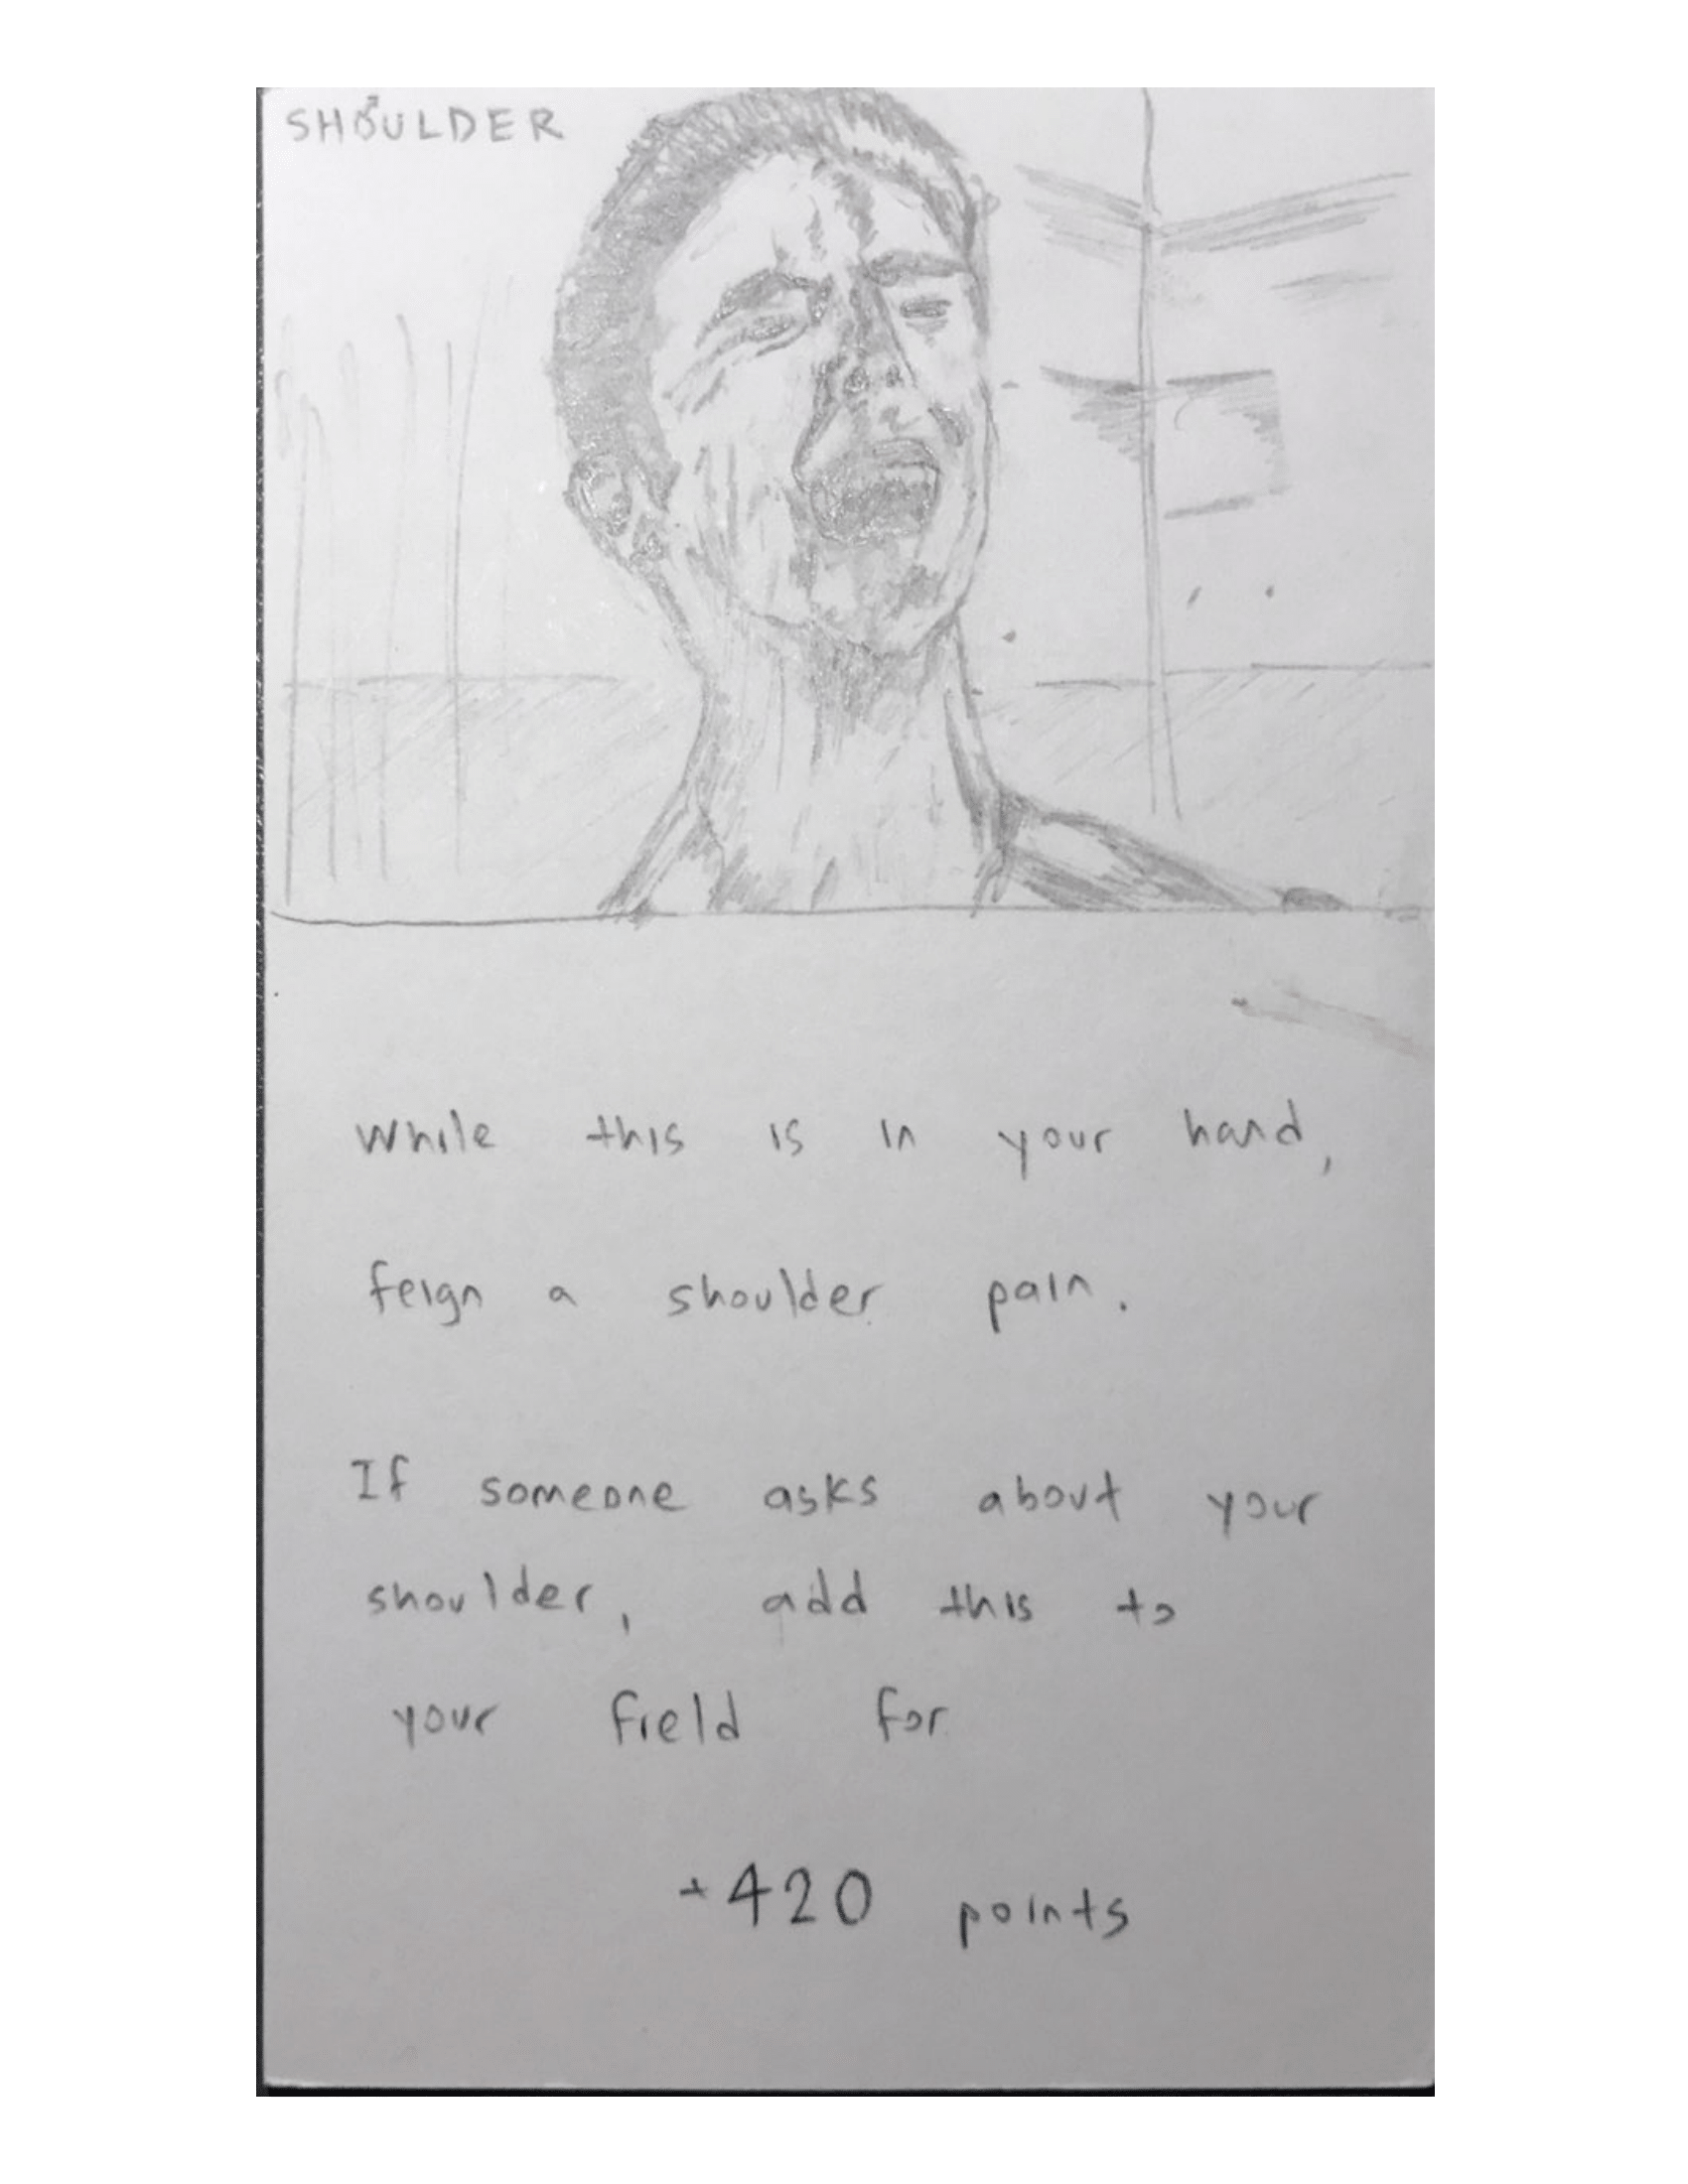 SHOULDER
While this is in your hand,
feign a shoulder pain.
If someone asks about your
shoulder, add this to
your field for
+420 points